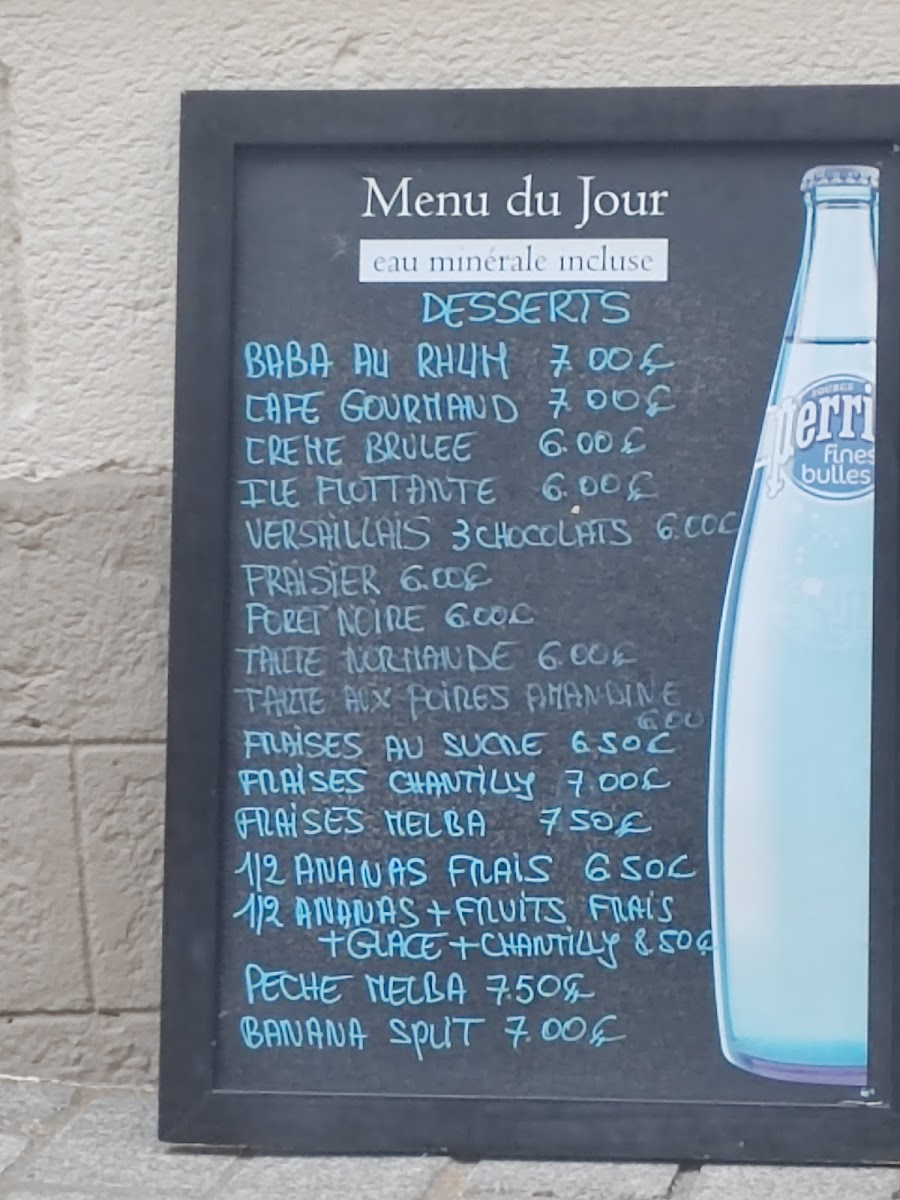 Menu du Jour
eau minérale incluse
DESSERTS
BABA AU RHUM 7.00€
CAFE GOURMAND 7.00€
CREME BRULEE 6.00€
ILE FLOTTANTE 6.00€
VERSAILLAIS 3 CHOCOLATS 6.00€
FRAISIER 6.00€
FORET NOIRE 6.00€
TARTE NORMANDE 6.00€
TARTE AUX POIRES AMANDINE
6.00
FRAISES AU SUCRE 6.50€
FRAISES CHANTILLY 7.00€
FRAISES MELBA 7.50€
1/2 ANANAS FRAIS 6.50€
1/2 ANANAS + FRUITS FRAIS
+ GLACE + CHANTILLY 8.50€
PECHE MELBA 7.50€
BANANA SPLIT 7.00€
SOURCE
perri
fines
bulles